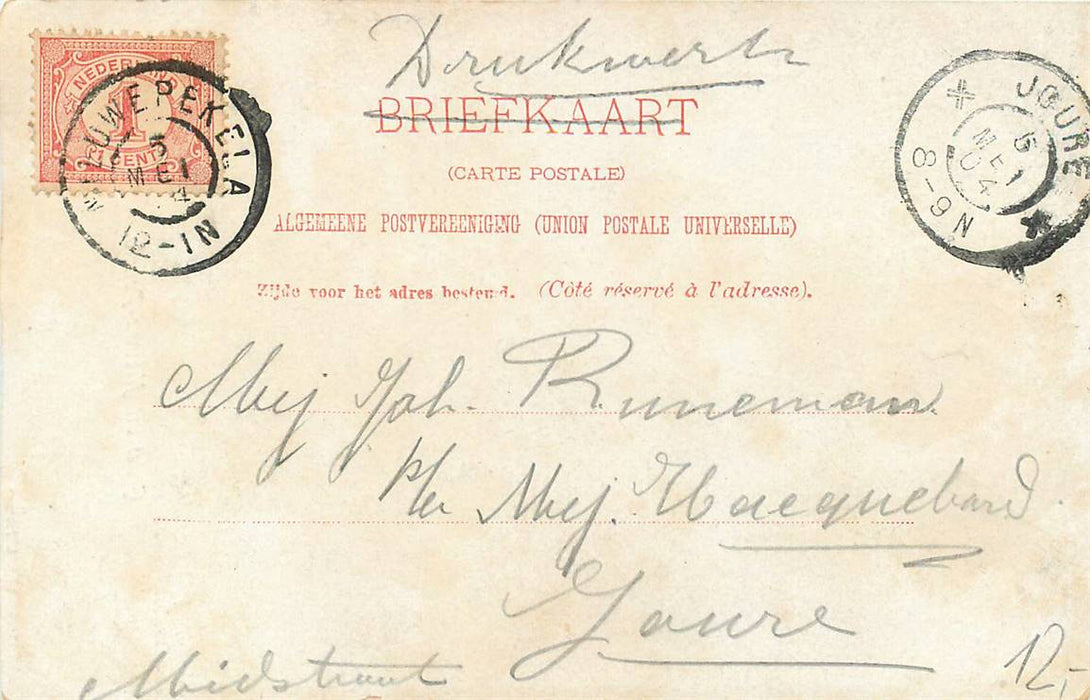 Drukwerk
BRIEFKAART
(CARTE POSTALE)
ALGEMEENE POSTVEREENIGING (UNION POSTALE UNIVERSELLE)
Zijde voor het adres bestemd. (Côté réservé à l'adresse).
NEDERLAND
1
CENT
NIEUWERKERK
5
MEI
12-1N
JOURE
5
MEI
04
8-9N
Mej Joh. Runeman
p/a Mej. Hacquebard
Joure
Midstraat
12,-